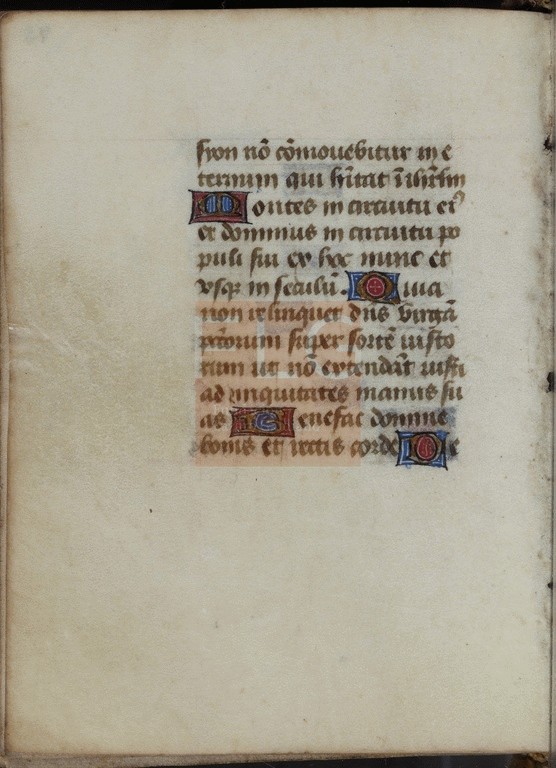 syon nō cōmouebitur in e
ternum qui hītat ī ihrlm
Montes in circuitu eiꝰ
et dominus in circuitu po
puli sui ex hoc nunc et
vsqꝫ in seculū. Quia
non relinquet dn̄s virgā
pctōrum super sortē iusto
rum ut nō extendāt iusti
ad iniquitates manus su
as Benefac domine
bonis et rectis corde De